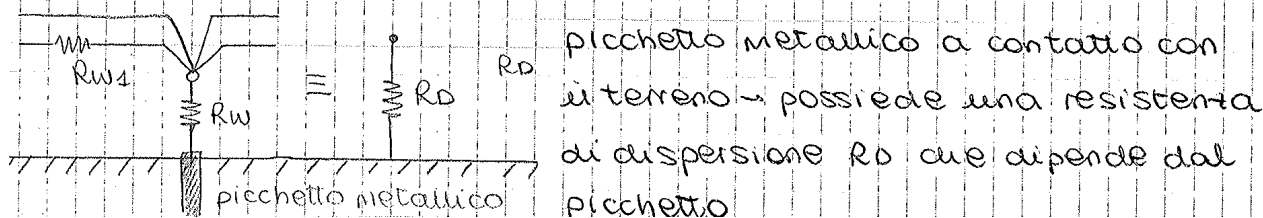 RW1
RW
≡
RD
RD
picchetto metallico
picchetto metallico a contatto con
il terreno → possiede una resistenza
di dispersione RD che dipende dal
picchetto